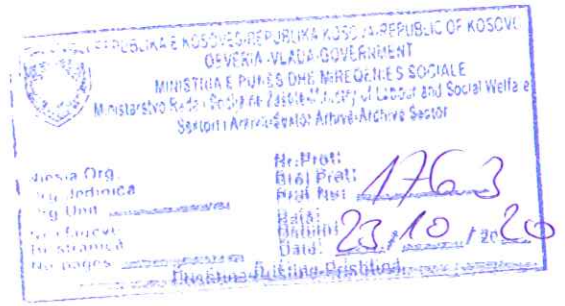 REPUBLIKA E KOSOVËS-REPUBLIKA KOSOVA-REPUBLIC OF KOSOVO
QEVERIA-VLADA-GOVERNMENT
MINISTRIA E PUNËS DHE MIRËQENIES SOCIALE
Ministarstvo Rada i Socijalne Zaštite-Ministry of Labour and Social Welfare
Sektori i Arkivit-Sektor Arhive-Archive Sector
Njesia Org.
Org. Jedinica
Org. Unit
Nr.Prot:
Broj Prot:
Prot No: 1763
Nr. i faqeve
Br. stranica
No. pages
Data:
Datum:
Date: 23 / 10 / 2020
Prishtina-Priština-Prishtina